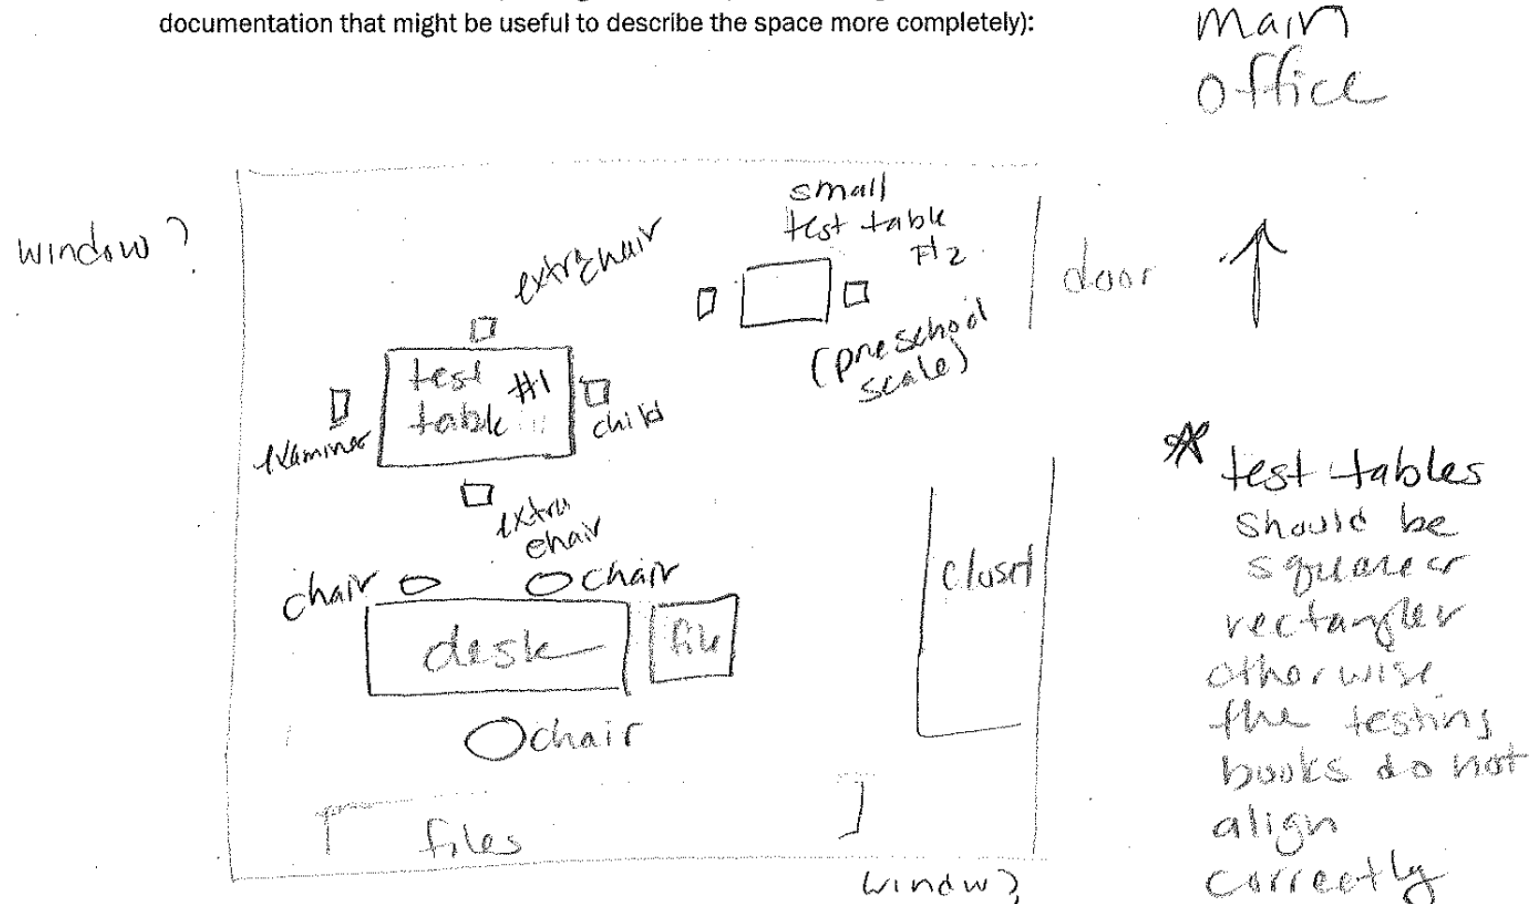 documentation that might be useful to describe the space more completely):
main
office
window?
small
test table
#2
extra chair
door
(preschool
scale)
test #1
table
child
examiner
extra
chair
chair
chair
desk
file
closet
chair
files
window?
* test tables
should be
square or
rectangler
otherwise
the testing
books do not
align
correctly